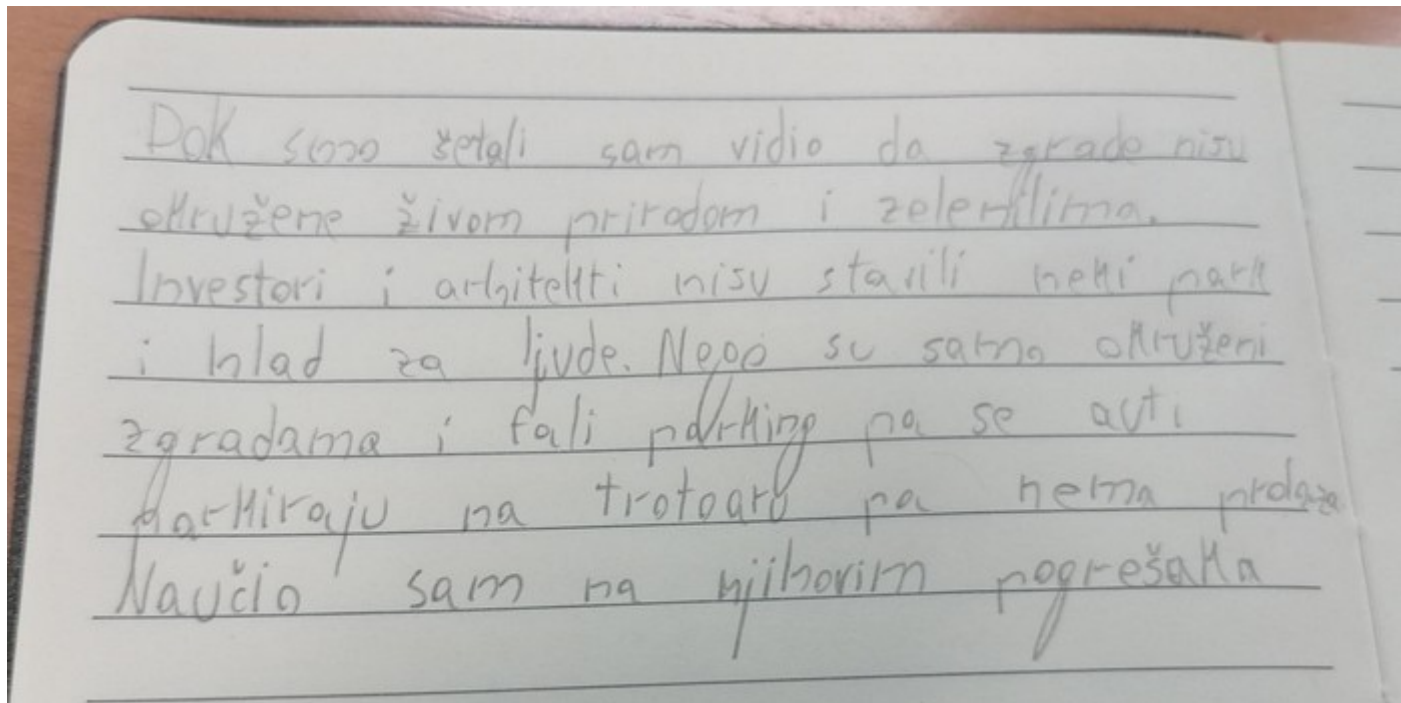 Dok smo šetali sam vidio da zgrade nisu
okružene živom prirodom i zelenilima.
Investori i arhitekti nisu stavili neki park
i hlad za ljude. Nego su samo okruženi
zgradama i fali parking pa se auti
parkiraju na trotoaru pa nema prolaza
Naučio sam na njihovim pogrešaka